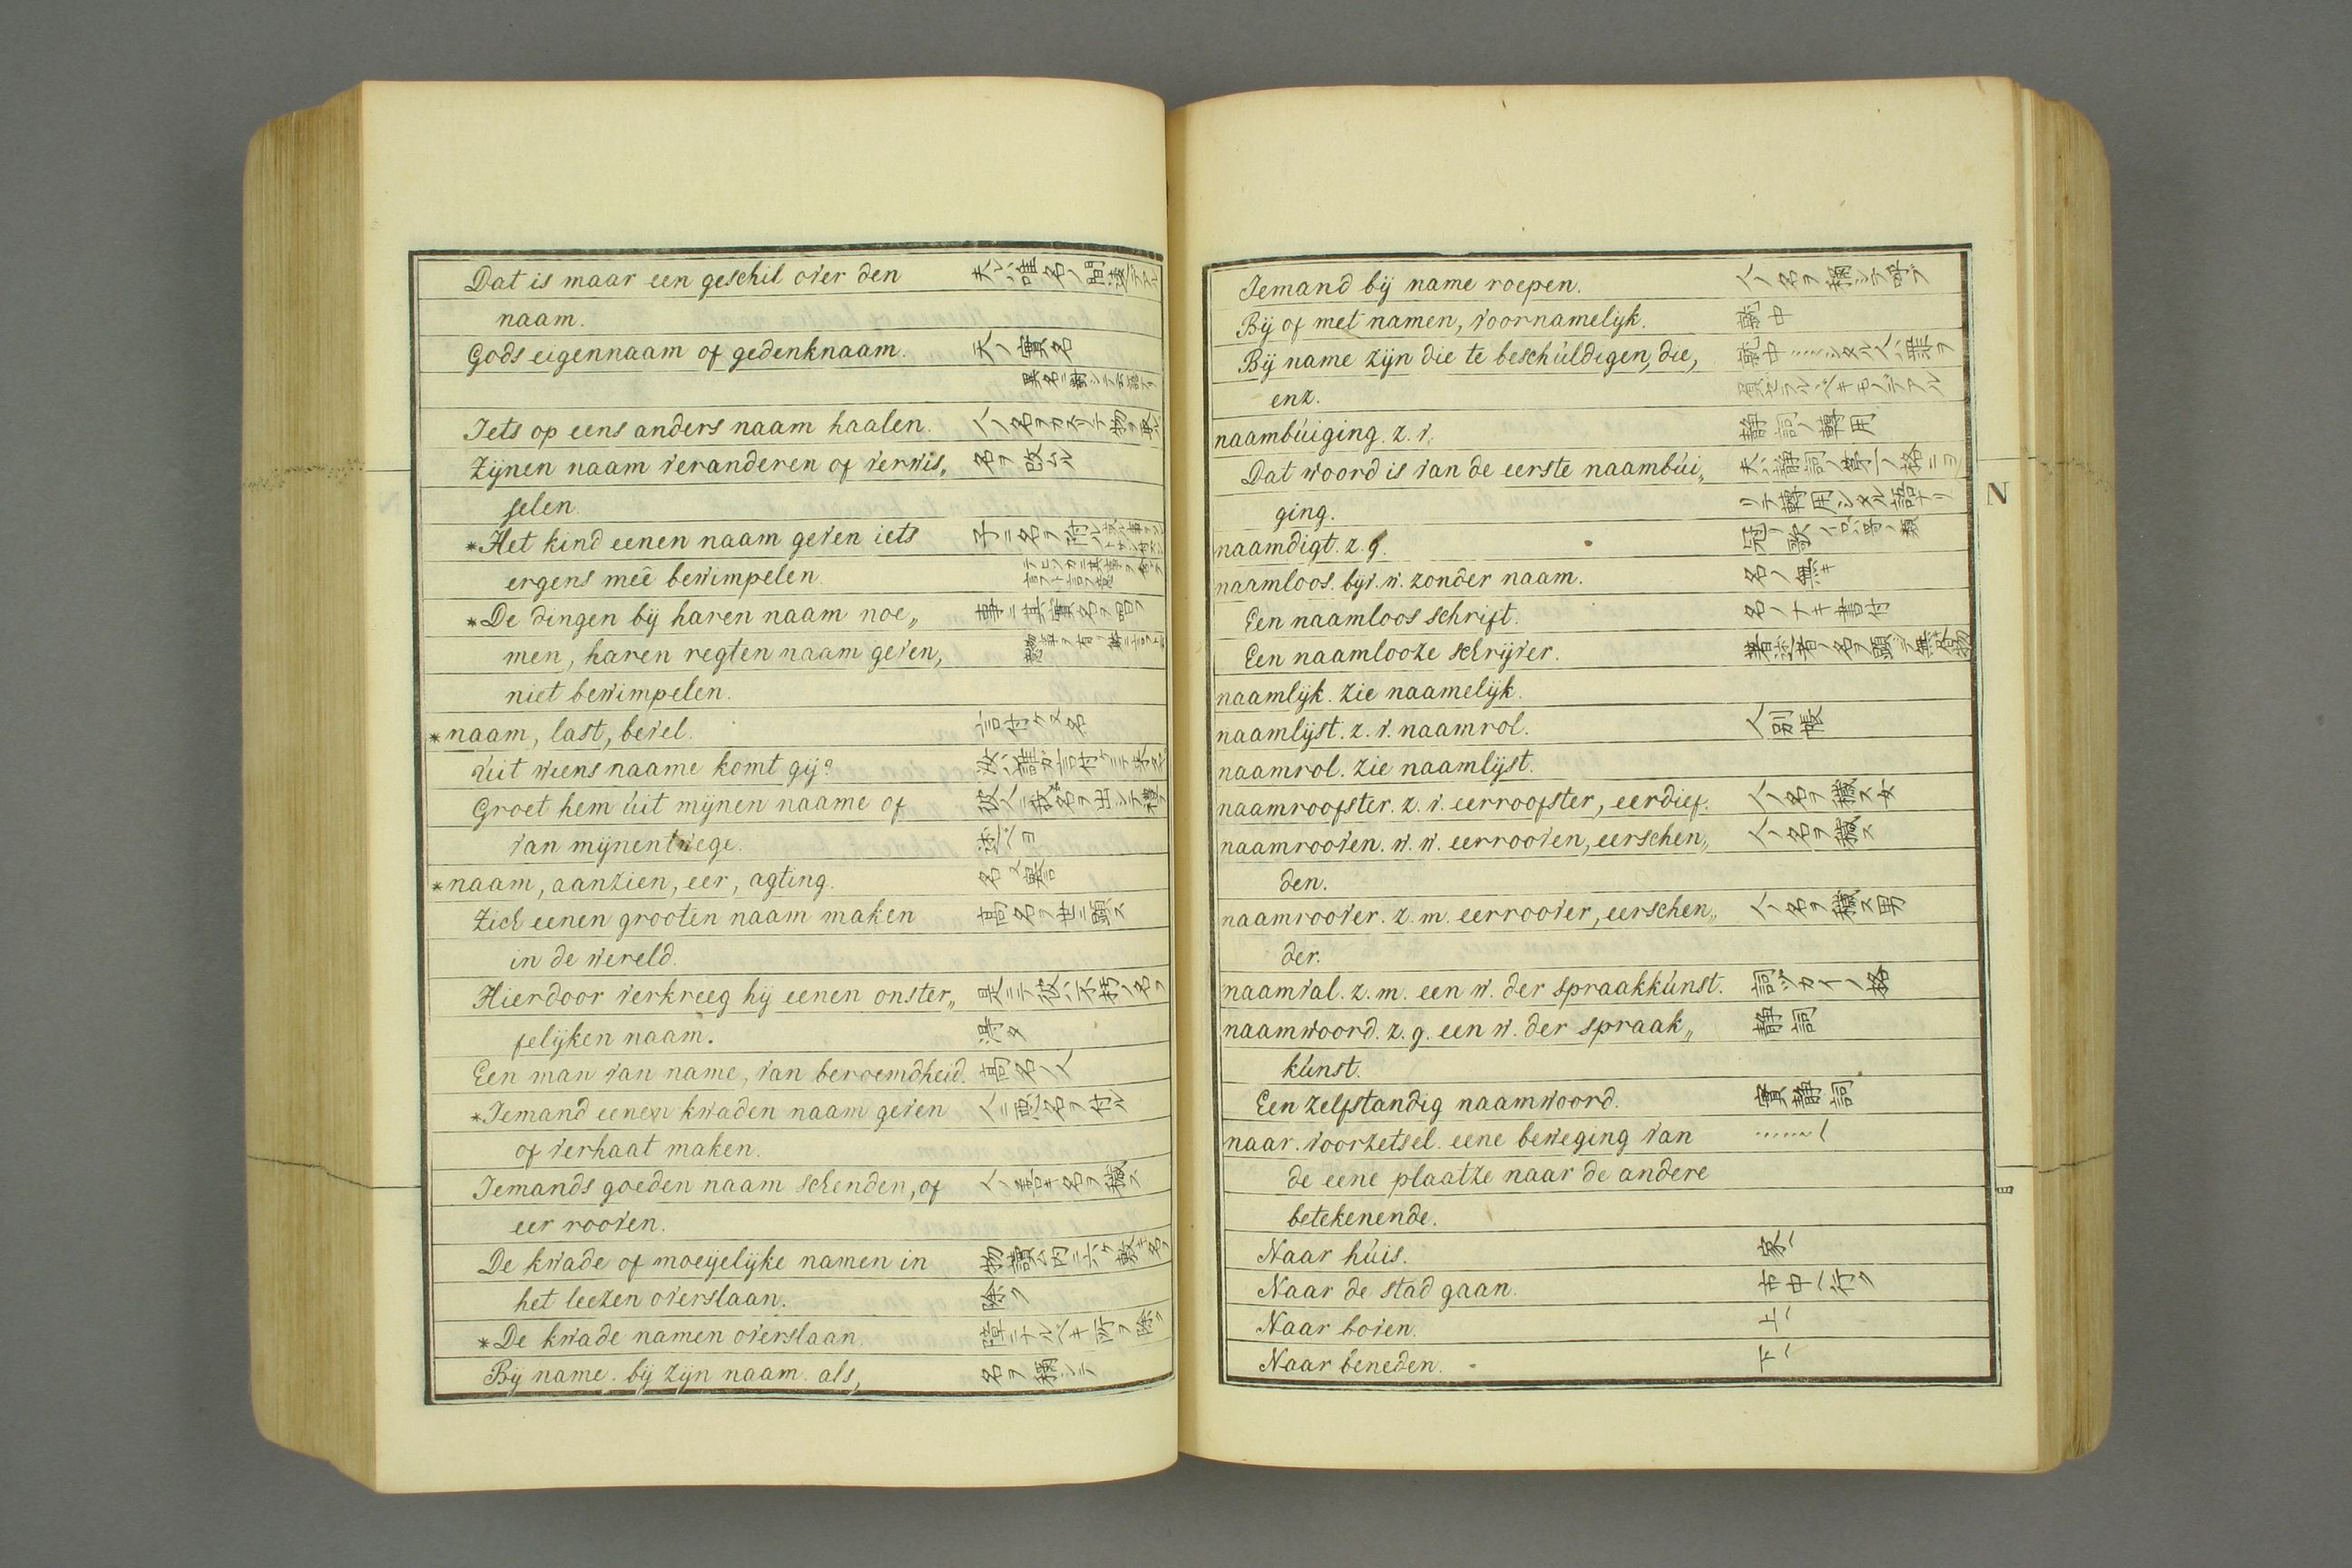 Dat is maar een geschil over den 夫ハ唯名ノ間違デアル
naam.
Gods eigennaam of gedenknaam. 天ノ實名
異名ニ對シテ云語ナリ
Iets op eens anders naam haalen. 人ノ名ヲカズリテ物ヲ取
Zijnen naam veranderen of verwis„ 名ヲ改ムル
selen.
*Het kind eenen naam geven iets 子ニ名ヲ附ル
ergens meê bewimpelen.
*De dingen bij haren naam noe„ 事ニ其實名ヲ唱フ
men, haren regten naam geven,
niet bewimpelen.
*naam, last, bevel. 言付ケ又名
Uit wiens naame komt gij? 汝ハ誰ガ言付ケニテ来タ
Groet hem uit mijnen naame of 彼人ニ我名ヲ出シテ禮ヲ
van mijnentwege. 述ベヨ
*naam, aanzien, eer, agting. 名又譽
Zich eenen grooten naam maken 高名ヲ世ニ顕ス
in de wereld.
Hierdoor verkreeg hij eenen onster„ 是ニテ彼ハ不朽ノ名ヲ
felijken naam. 得タ
Een man van name, van beroemdheid. 高名ノ人
*Iemand eenen kwaden naam geven 人ニ悪名ヲ付ル
of verhaat maken.
Iemands goeden naam schenden, of 人ノ善キ名ヲ穢ス
eer rooven.
De kwade of moeijelijke namen in 物讀ム内ニ六ケ敷キ名ヲ
het leezen overslaan. 除ク
*De kwade namen overslaan. 障ニナルベキ所ヲ除ク
Bij name. bij zijn naam. als, 名ヲ稱シテ
Iemand bij name roepen. 人ノ名ヲ稱シテ呼ブ
Bij of met namen, voornamelijk. 就中
Bij name zijn die te beschuldigen, die, 就中……シタル人ハ罪ヲ
enz. 負セラルベキモノデアル
naambuiging. z. v. 静詞ノ轉用
Dat woord is van de eerste naambui„ 夫ハ静詞ノ第一ノ格ニヨ
ging. リテ轉用シタル語ナリ
naamdigt. z. g. 冠リ歌
naamloos. bijv. w. zonder naam. 名ノ無キ
Een naamloos schrift. 名ノナキ書付
Een naamlooze schrijver. 著述者ノ名ヲ顕シテ無キ書物
naamlijk. zie naamelijk.
naamlijst. z. v. naamrol. 人別帳
naamrol. zie naamlijst.
naamroofster. z. v. eerroofster, eerdief. 人ノ名ヲ穢ス女
naamrooven. w. w. eerrooven, eerschen„ 人ノ名ヲ穢ス
den.
naamroover. z. m. eerroover, eerschen„ 人ノ名ヲ穢ス男
der.
naamval. z. m. een w. der spraakkunst. 詞ヅカイノ格
naamwoord. z. g. een w. der spraak„ 静詞
kunst.
Een zelfstandig naamwoord. 實静詞
naar. voorzetsel. eene beweging van ……ヘ
de eene plaatze naar de andere
betekenende.
Naar huis. 家ヘ
Naar de stad gaan. 市中ヘ行ク
Naar boven. 上ヘ
Naar beneden. 下ヘ
N